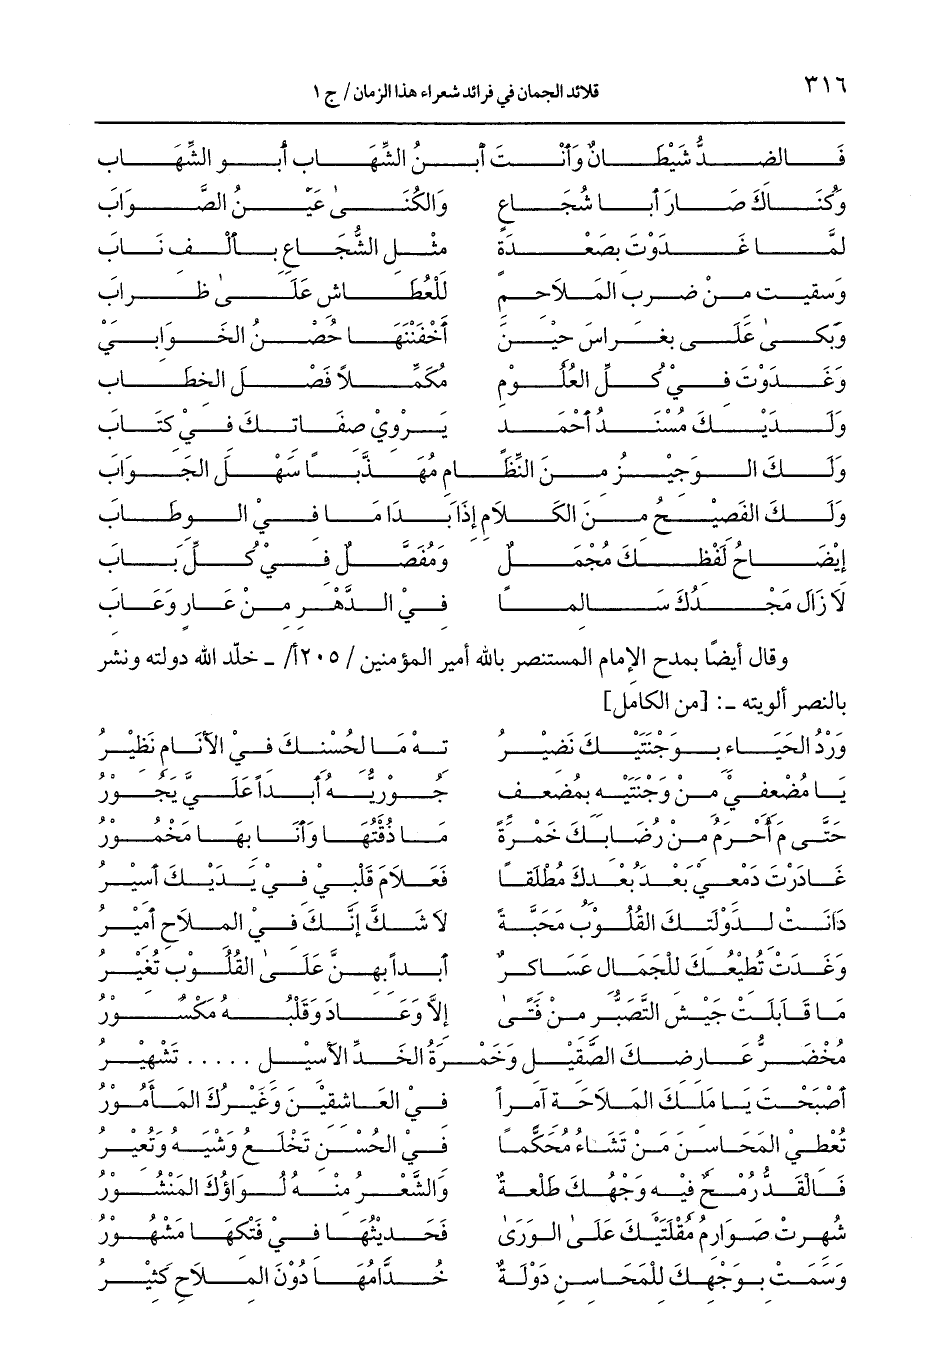 ٣١٦
قلائد الجمان في فرائد شعراء هذا الزمان/ ج ١
فَالضدُّ شَيْطَانٌ وَأَنْتَ أَبنُ الشِّهَابِ أَبو الشِّهَابِ
وَكُنَاكَ صَارَ أَبا شُجَاعٍ وَالكُنَى عَيْنُ الصَّوَابِ
لَمَّا غَدَوْتَ بِصَعْدَةٍ مثْلِ الشُّجَاعِ بِأَلْفِ نَابِ
وَسقيت منْ ضربِ المَلاَحِمِ لِلْعُطَاشِ عَلَى ظرابِ
وَبَكَى عَلَى بغْرَاسَ حيْنَ أَخْفَتْهَا حُصْنُ الخَوَابيْ
وَغَدَوْتَ فيْ كُلِّ العُلُوْمِ مُكَمَّلاً فَصْلَ الخِطَابِ
وَلَدَيْكَ مُسْنَدُ أَحْمَدٍ يَرْوِيْ صِفَاتِكَ فيْ كتَابِ
وَلَكَ الوَجيْزُ منَ النِّظَامِ مُهَذَّباً سَهْلَ الجَوَابِ
وَلَكَ الفَصيْحُ منَ الكَلاَمِ إِذَا بَدَا مَا في الوطَابِ
إِيْضَاحُ لَفْظكَ مُجْمَلٌ وَمُفَصَّلٌ فيْ كُلِّ بَابِ
لاَ زَالَ مَجْدُكَ سَالماً فيْ الدَّهْرِ منْ عَارٍ وَعَابِ
وقال أيضاً يمدح الإمام المستنصر بالله أمير المؤمنين /٢٠٥أ/ ـ خلّد الله دولته ونشر
بالنصر ألويته ـ: [من الكامل]
وَرْدُ الحَيَاءِ بوَجْنَتَيْكَ نَضيْرُ تهْ مَا لحُسْنكَ فيْ الأَنَامِ نَظيْرُ
يَا مُضْعفيْ منْ وَجْنَتَيْه بمُضْعَف جُوْريُّهُ أَبَداً عَلَيَّ يَجُوْرُ
حَتَّى مَ أُحْرَمُ منْ رُضَابكَ خَمْرَةً مَا ذُقْتُهَا وَأَنَا بهَا مَخْمُوْرُ
غَادَرْتَ دَمْعيْ بَعْدَ بُعْدكَ مُطْلَقاً فَعَلاَمَ قَلْبيْ فيْ يَدَيْكَ أَسيْرُ
دَانَتْ لدَوْلَتكَ القُلُوْبُ مَحَبَّةً لاَ شَكَّ إنَّكَ فيْ الملاَحِ أَميْرُ
وَغَدَتْ تُطيْعُكَ للْجَمَالِ عَسَاكرٌ أَبَداً بهنَّ عَلَى القُلُوْبِ تُغيْرُ
مَا قَابَلَتْ جَيْشَ التَّصَبُّرِ منْ فَتًى إلاَّ وَعَادَ وَقَلْبُهُ مَكْسُوْرُ
مُخْضَرُّ عَارضكَ الصَّقيْلِ وَحُمْرَةُ الخَدِّ الأَسيْلِ ..... تَشْهيْرُ
أَصْبَحْتَ يَا مَلكَ المَلاَحَة آمراً فيْ العَاشقيْنَ وَغَيْرُكَ المَأْمُوْرُ
تُعْطيْ المَحَاسنَ مَنْ تَشَاءُ مُحَكَّماً فيْ الحُسْنِ تَخْلَعُ وَشْيَهُ وَتُعيْرُ
فَالقَدُّ رُمْحٌ فيْه وَجْهُكَ طَلْعَةٌ وَالشَّعْرُ منْهُ لوَاؤُكَ المَنْشُوْرُ
شُهرَتْ صَوَارمُ مُقْلَتَيْكَ عَلَى الوَرَى فَحَديْثُهَا فيْ فَتْكهَا مَشْهُوْرُ
وَسَمَتْ بوَجْهكَ للْمَحَاسنِ دَوْلَةٌ خُدَّامُهَا دُوْنَ الملاَحِ كَثيْرُ